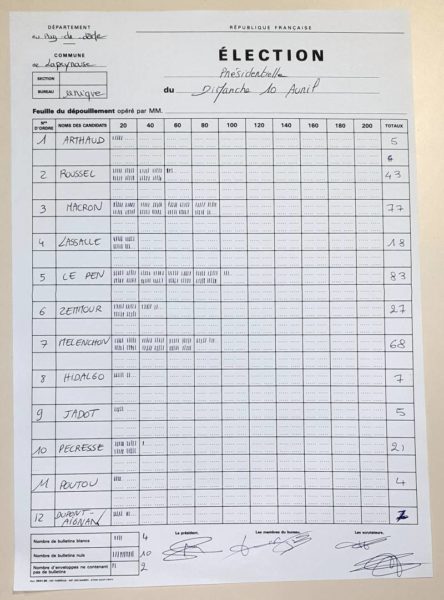 DÉPARTEMENT
du Puy-de-Dôme
RÉPUBLIQUE FRANÇAISE
COMMUNE
de Lapeyrouse
ÉLECTION
Présidentielle
SECTION
BUREAU unique
du Dimanche 10 Avril
Feuille du dépouillement opéré par MM.
Nos D'ORDRE NOMS DES CANDIDATS 20 40 60 80 100 120 140 160 180 200 TOTAUX
1 ARTHAUD 5
2 ROUSSEL 43
3 MACRON 77
4 LASSALLE 18
5 LE PEN 83
6 ZEMMOUR 27
7 MELENCHON 68
8 HIDALGO 7
9 JADOT 5
10 PECRESSE 21
11 POUTOU 4
12 DUPONT-
AIGNAN 7
Nombre de bulletins blancs 4
Le président, Les membres du bureau, Les scrutateurs,
Nombre de bulletins nuls 10
Nombre d'enveloppes ne contenant
pas de bulletins 2